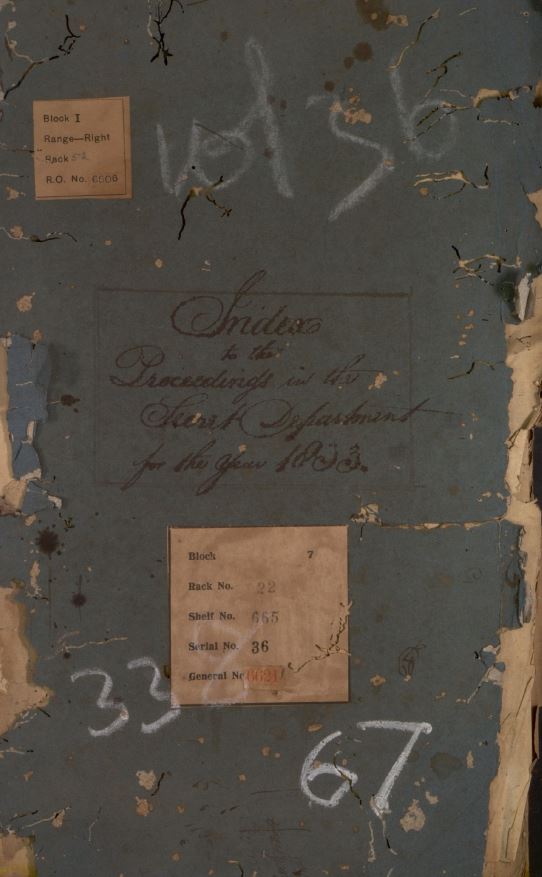 Block I
Range—Right
Rack 52
R.O. No. 6606
vol 36
Index
to the
Proceedings in the
Secret Department
for the Year 1833.
Block 7
Rack No. 22
Shelf No. 665
Serial No. 36
General No 6621
33
67